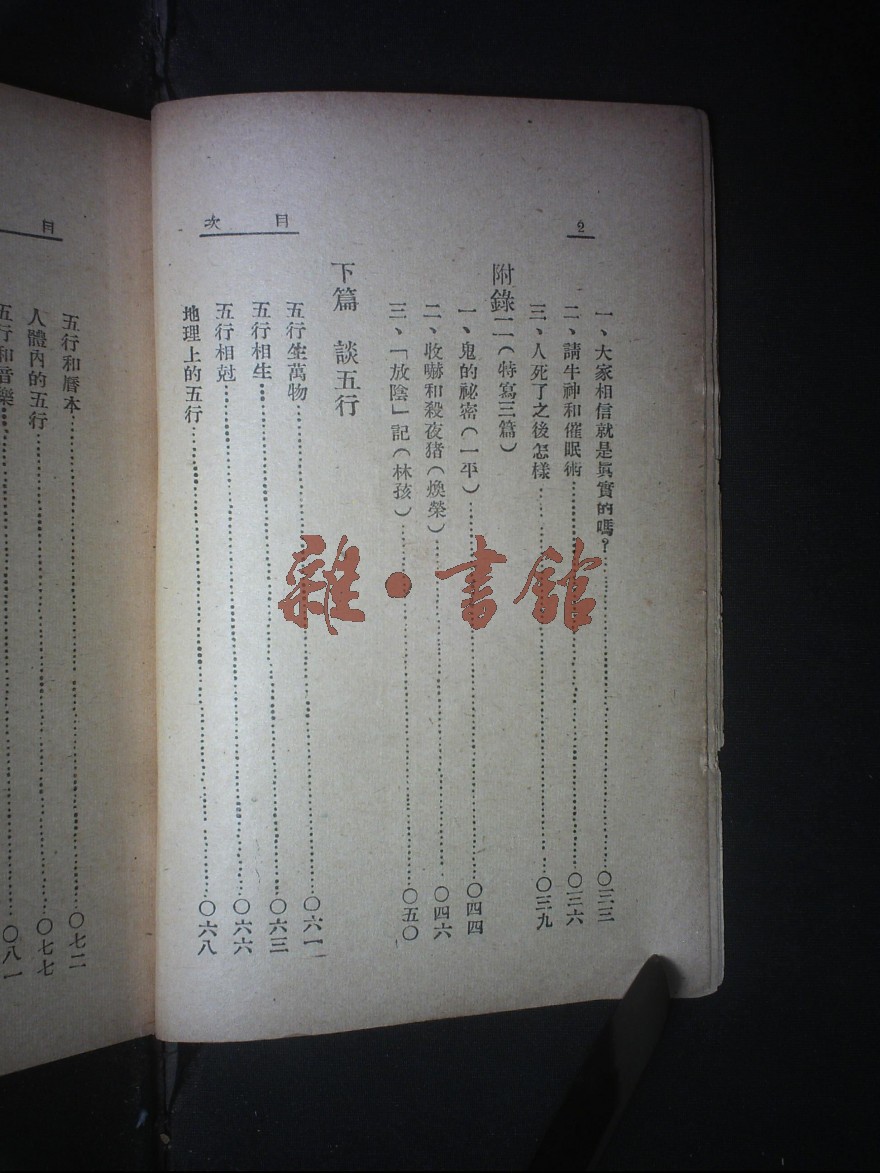 2
目次
一、大家相信就是眞實的嗎？……〇三三
二、請牛神和催眠術……〇三六
三、人死了之後怎樣……〇三九
附錄二（特寫三篇）
一、鬼的祕密（一平）……〇四四
二、收嚇和殺夜猪（煥榮）……〇四六
三、「放陰」記（林孩）……〇五〇
下篇 談五行
五行生萬物……〇六一
五行相生……〇六三
五行相尅……〇六六
地理上的五行……〇六八
目
五行和曆本……〇七二
人體內的五行……〇七七
五行和音樂……〇八一
雜·書館